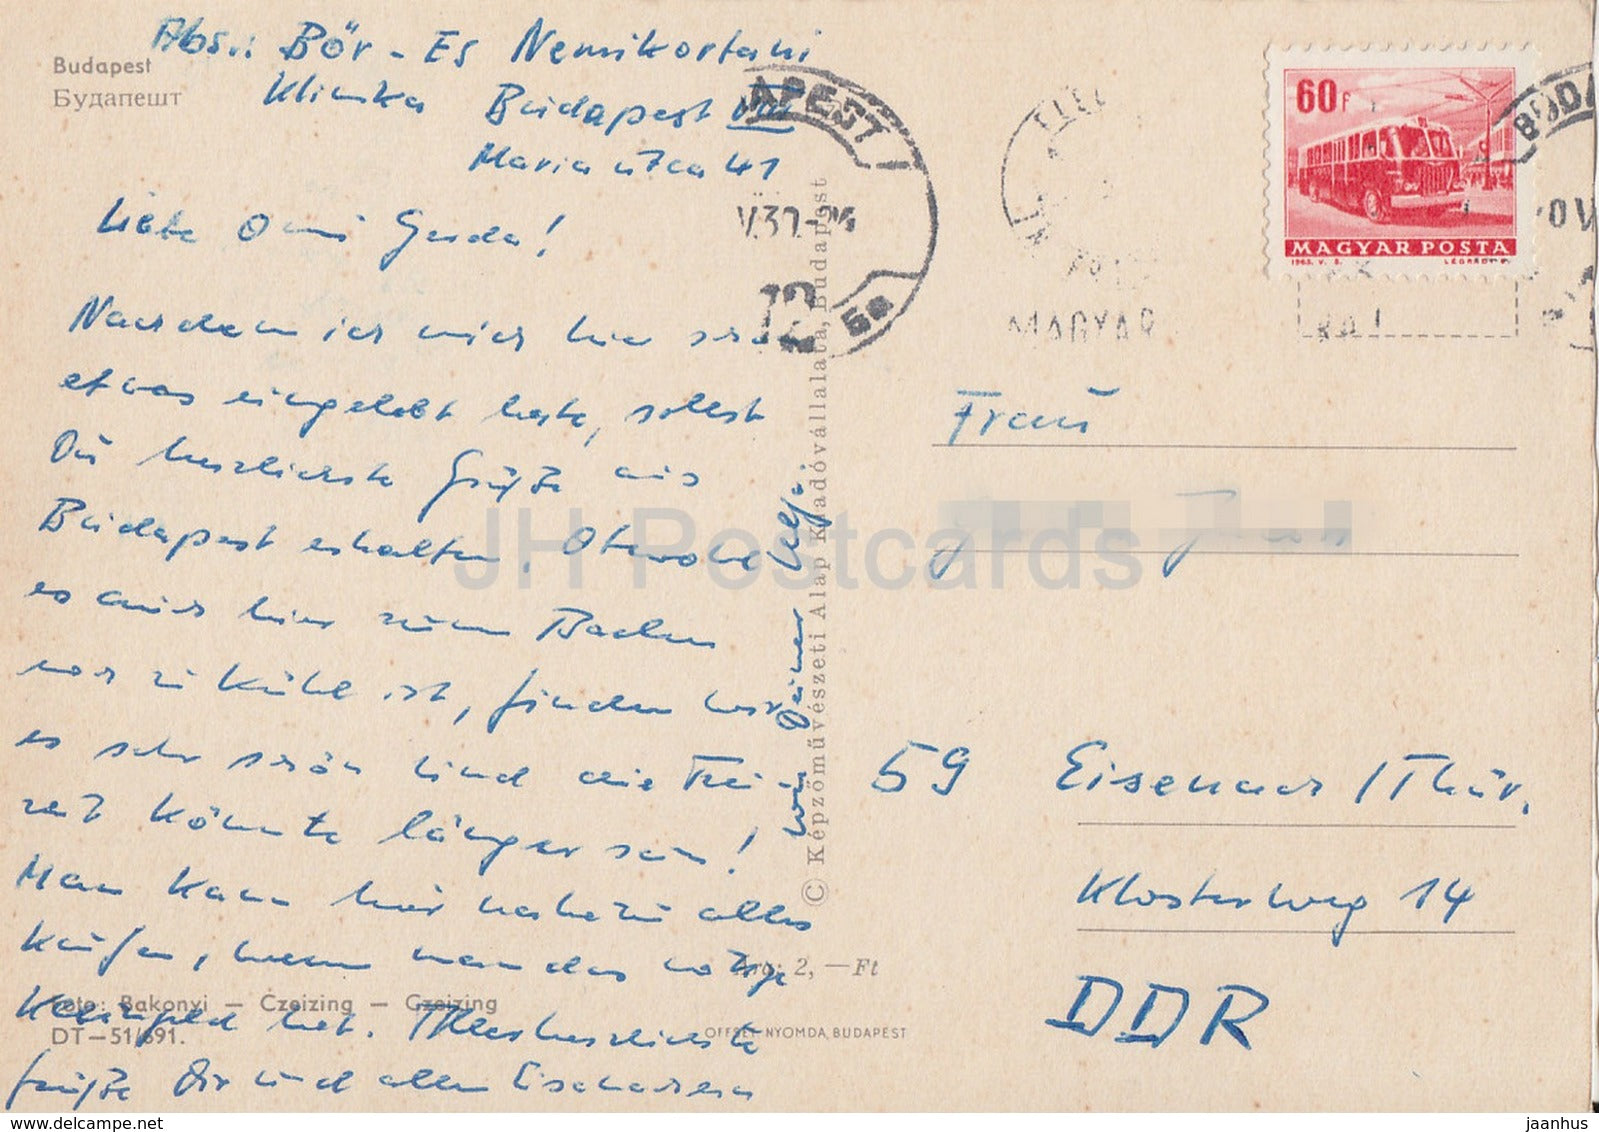 Budapest
Будапешт
Abs.: Bőr - Es Nemikortani
Klinika Budapest VIII
Maria utca 41
Liebe Omi Gerda!
Nachdem ich mich hier schon
etwas eingelebt habe, sollst
Du herzlichste Grüße aus
Budapest erhalten. Obwohl
es auch hier zum Baden
noch zu kühl ist, finden wir
es sehr schön und die Frei-
zeit könnte länger sein!
Man kann hier nahezu alles
kaufen, wenn man das nötige
Kleingeld hat. Allerherzlichste
Grüße Dir und allen Eisenachern
von Deiner
Foto: Bakonyi — Czeizing — Czeizing
DT—51/691.
© Képzőművészeti Alap Kiadóvállalata, Budapest
Ára: 2,—Ft
OFFSET-NYOMDA, BUDAPEST
APEST
V.31-24
12
5a
MAGYAR
BUDA
60f
MAGYAR POSTA
1963. V. B. LÉGRÁDY
Frau
59 Eisenach/Thür.
Klosterweg 14
DDR
JH Postcards
jaanhus @ delcampe.net